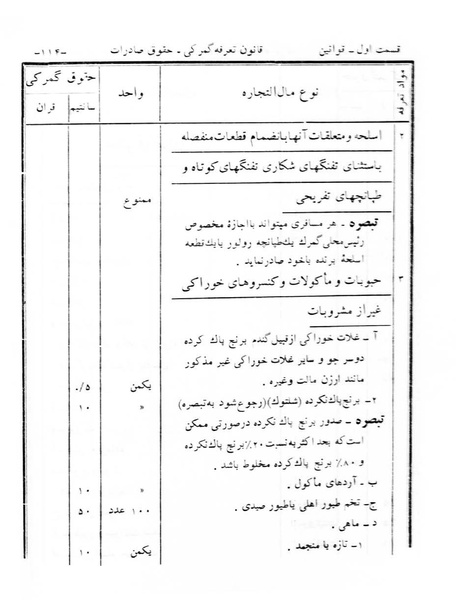 قسمت اول ـ قوانین     قانون تعرفه گمرکی ـ حقوق صادرات     ـ۱۱۴ـ
مواد تعرفه     نوع مال‌التجاره     واحد     حقوق گمرکی
سانتیم     قران
۲     اسلحه و متعلقات آنها بانضمام قطعات منفصله
باستثنای تفنگهای شکاری تفنگهای کوتاه و
طپانچهای تفریحی     ممنوع
تبصره ـ هر مسافری میتواند با اجازهٔ مخصوص
رئیس محلی گمرک یک طپانچه رولور یا یک قطعه
اسلحهٔ برنده با خود صادر نماید .
۳     حبوبات و مأکولات و کنسروهای خوراکی
غیر از مشروبات
آ ـ غلات خوراکی از قبیل گندم برنج پاک کرده
دوسر جو و سایر غلات خوراکی غیر مذکور
مانند ارزن مالت وغیره .     یکمن     ۵/.
۲ـ برنج پاک نکرده (شلتوک)(رجوع شود به تبصره)     »     ۱۰
تبصره ـ صدور برنج پاک نکرده درصورتی ممکن
است که بحد اکثر به نسبت ۲۰٪ برنج پاک نکرده
و ۸۰٪ برنج پاک کرده مخلوط باشد .
ب ـ آردهای مأکول .     »     ۱۰
ج ـ تخم طیور اهلی یا طیور صیدی .     ۱۰۰ عدد     ۵۰
د ـ ماهی .
۱ـ تازه یا منجمد .     یکمن     ۱۰